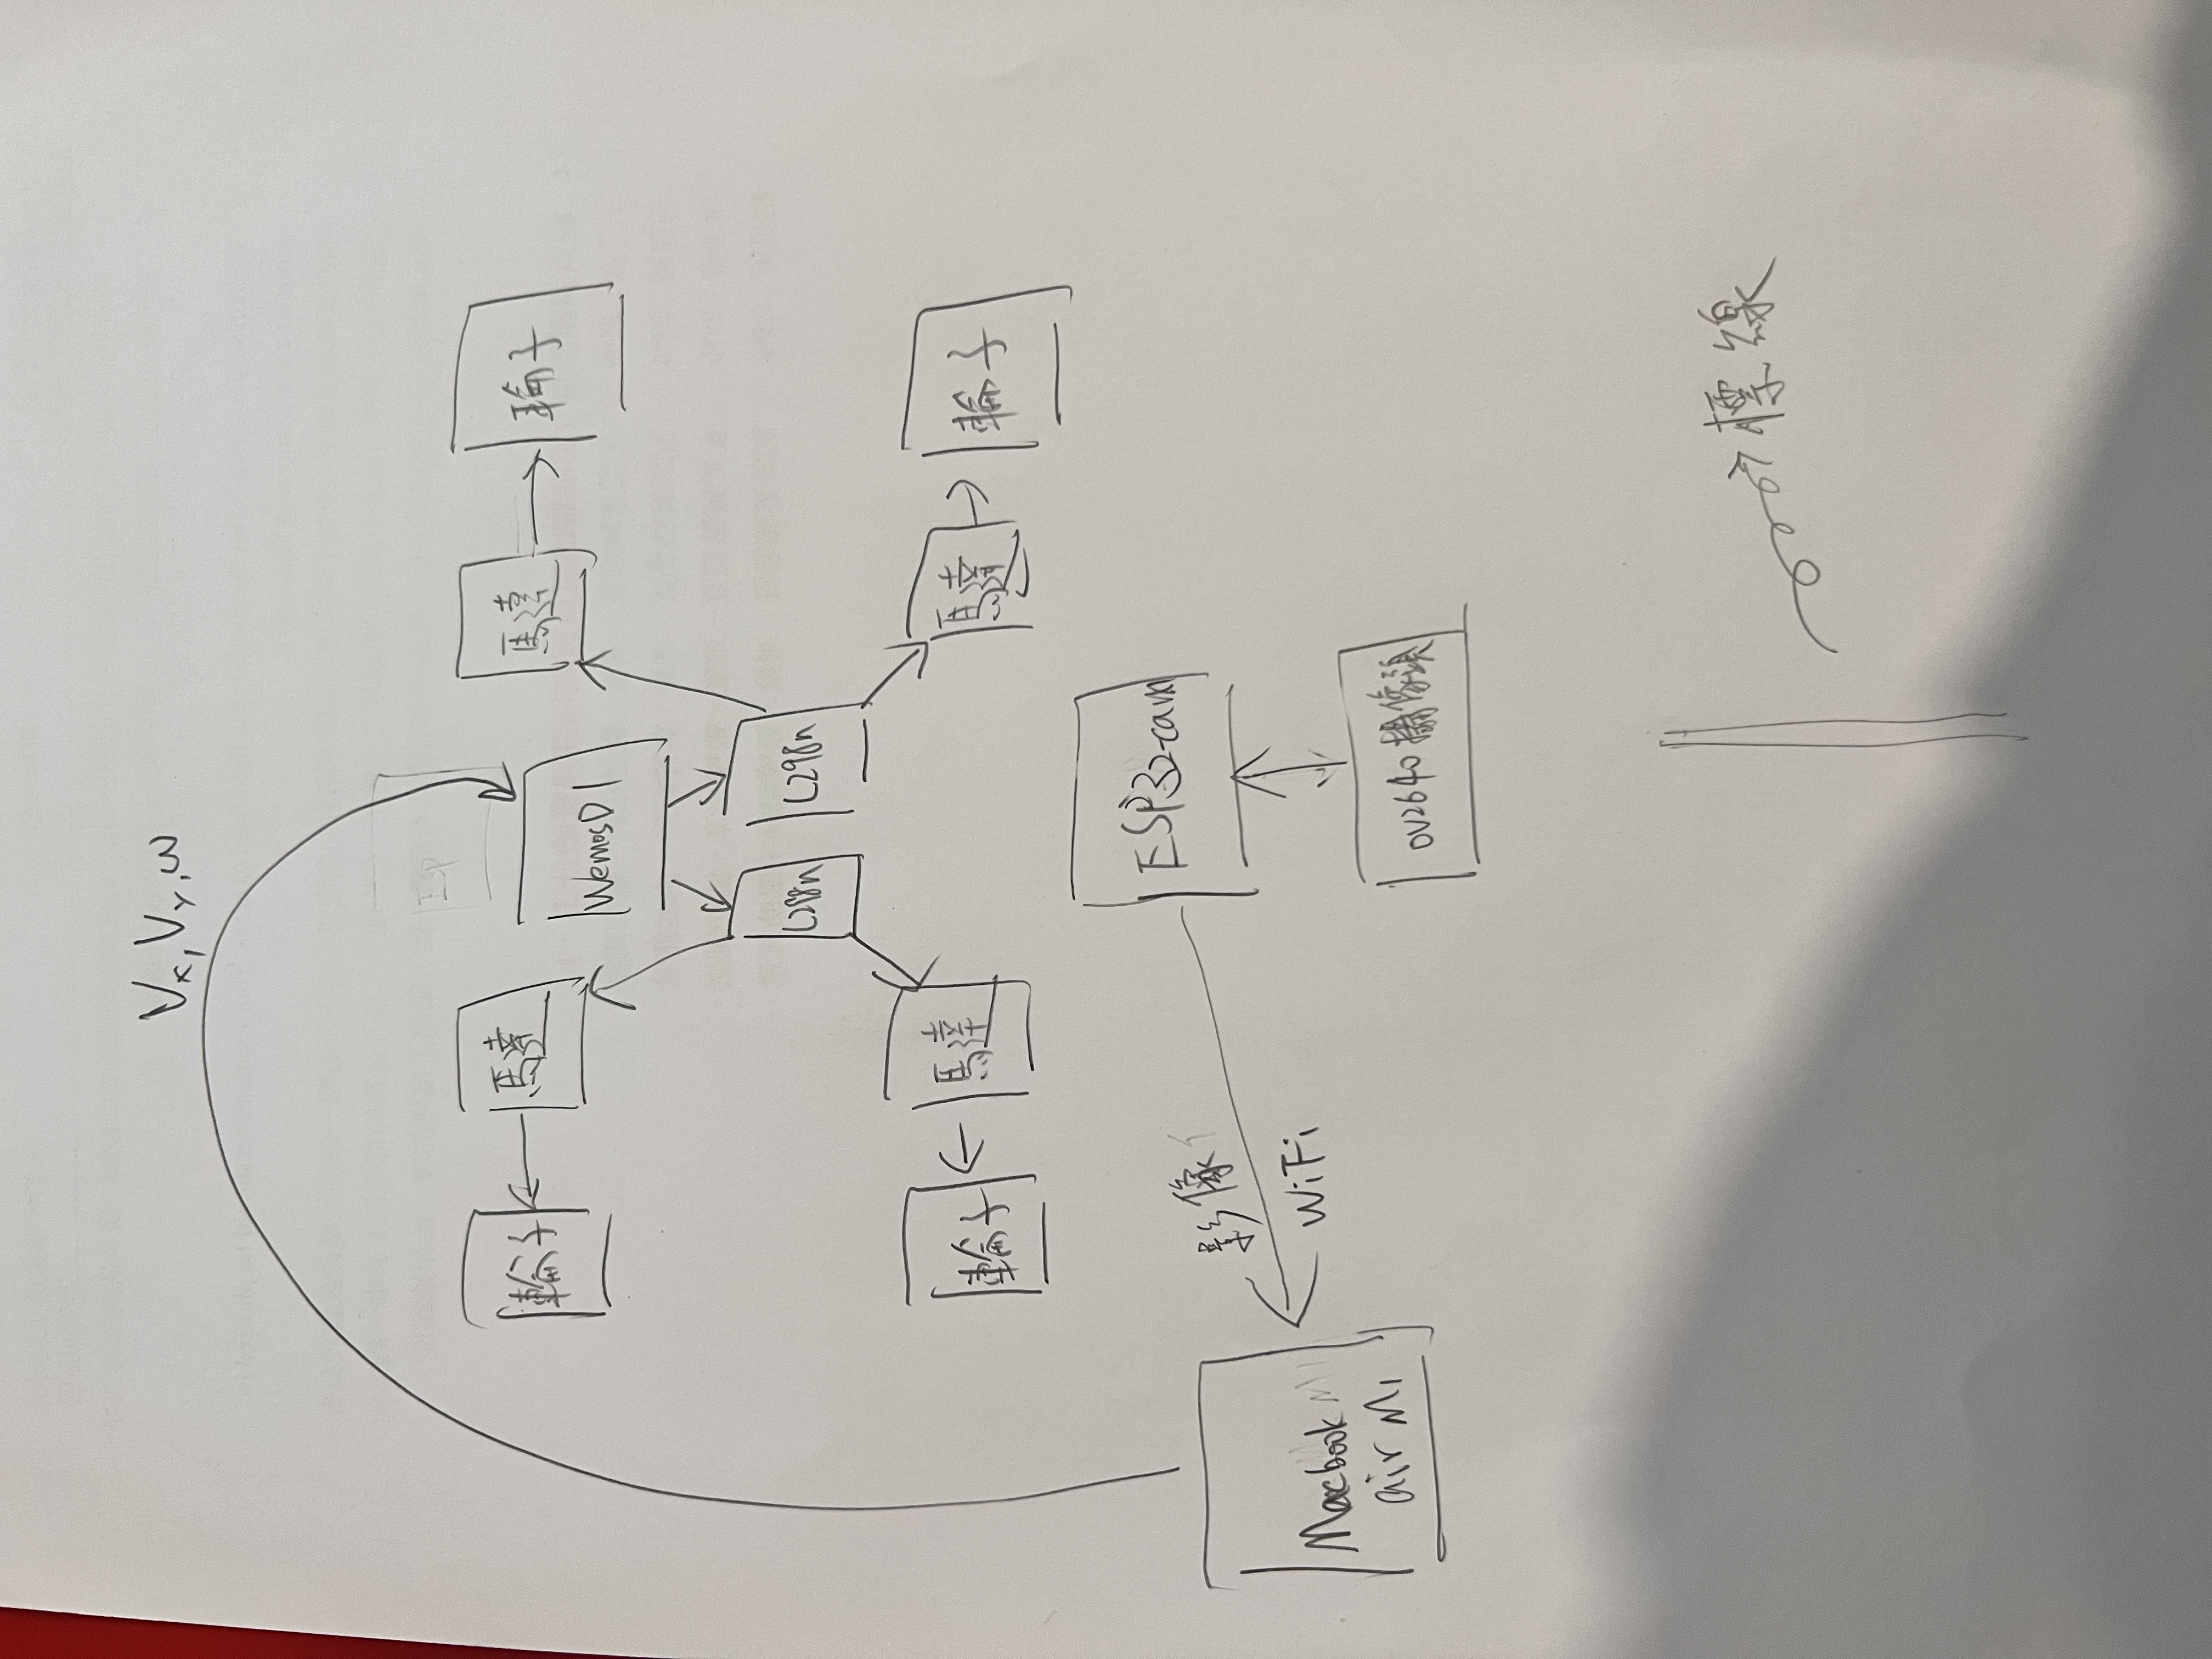 Vx, Vy, ω
Esp
輪子
馬達
WemosD1
馬達
輪子
L298n
L298n
輪子
馬達
馬達
輪子
ESP32-cam
影像
WiFi
Macbook
air M1
OV2640 攝像頭
標線